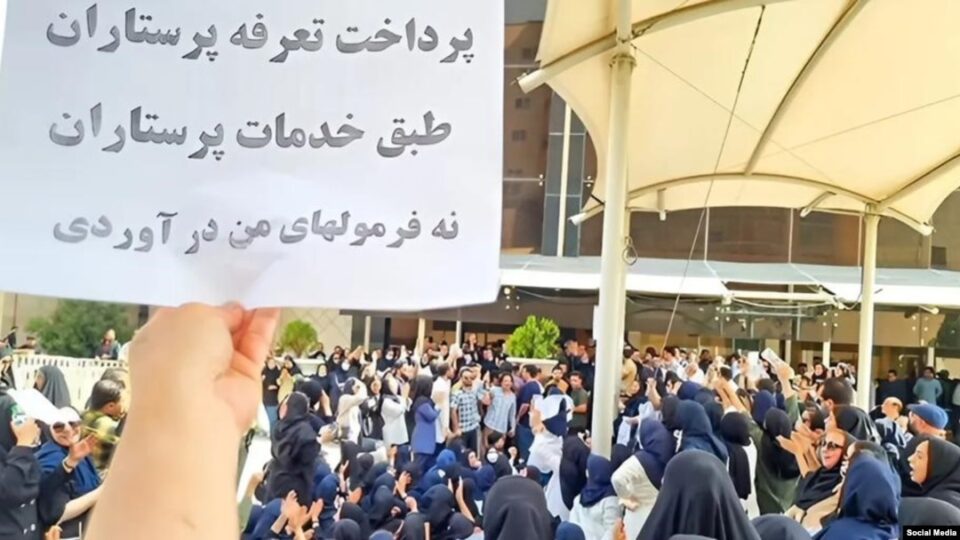 پرداخت تعرفه پرستاران
طبق خدمات پرستاران
نه فرمولهای من در آوردی
Social Media